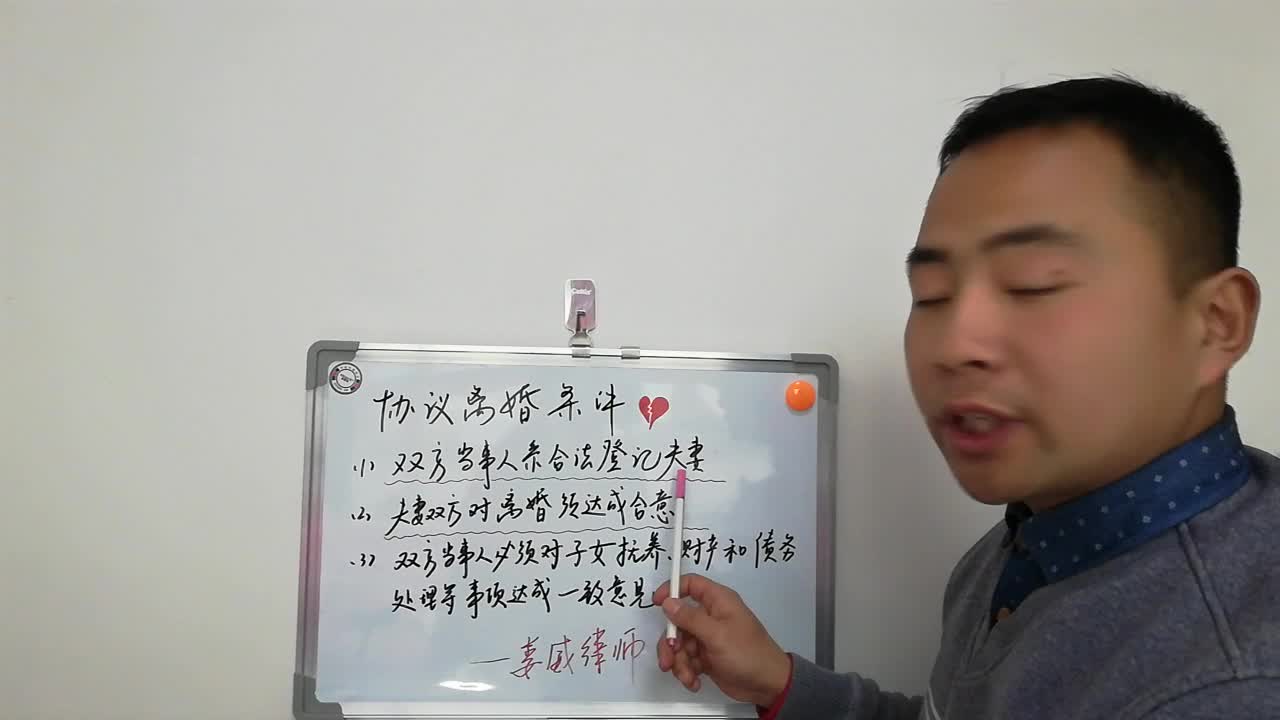 协议离婚条件
(1) 双方当事人系合法登记夫妻
(2) 夫妻双方对离婚须达成合意
(3) 双方当事人必须对子女抚养、财产和债务
处理等事项达成一致意见
—娄威律师